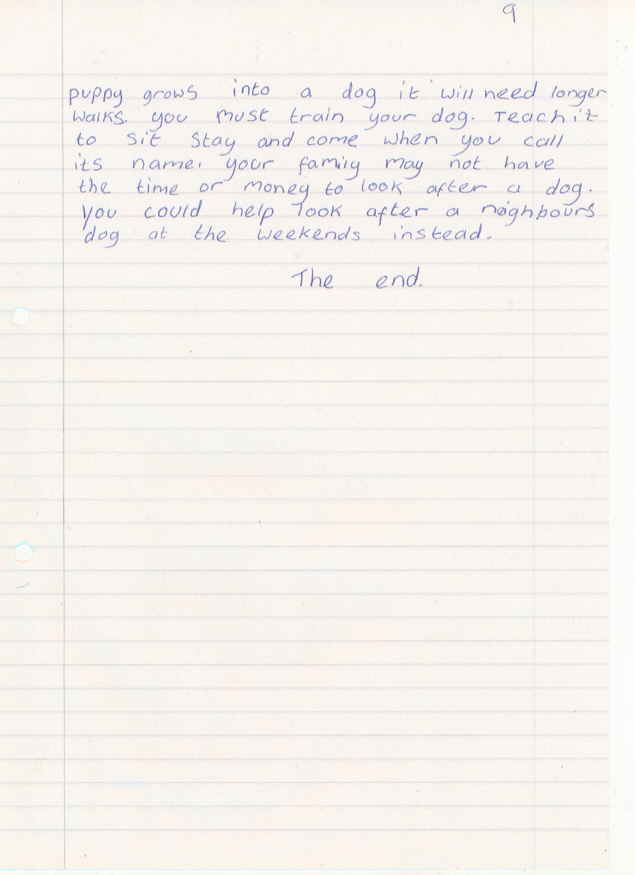 9
puppy grows into a dog it will need longer
walks. you must train your dog. Teach it
to sit stay and come when you call
its name. your family may not have
the time or money to look after a dog.
you could help look after a nighbours
dog at the weekends instead.
The end.